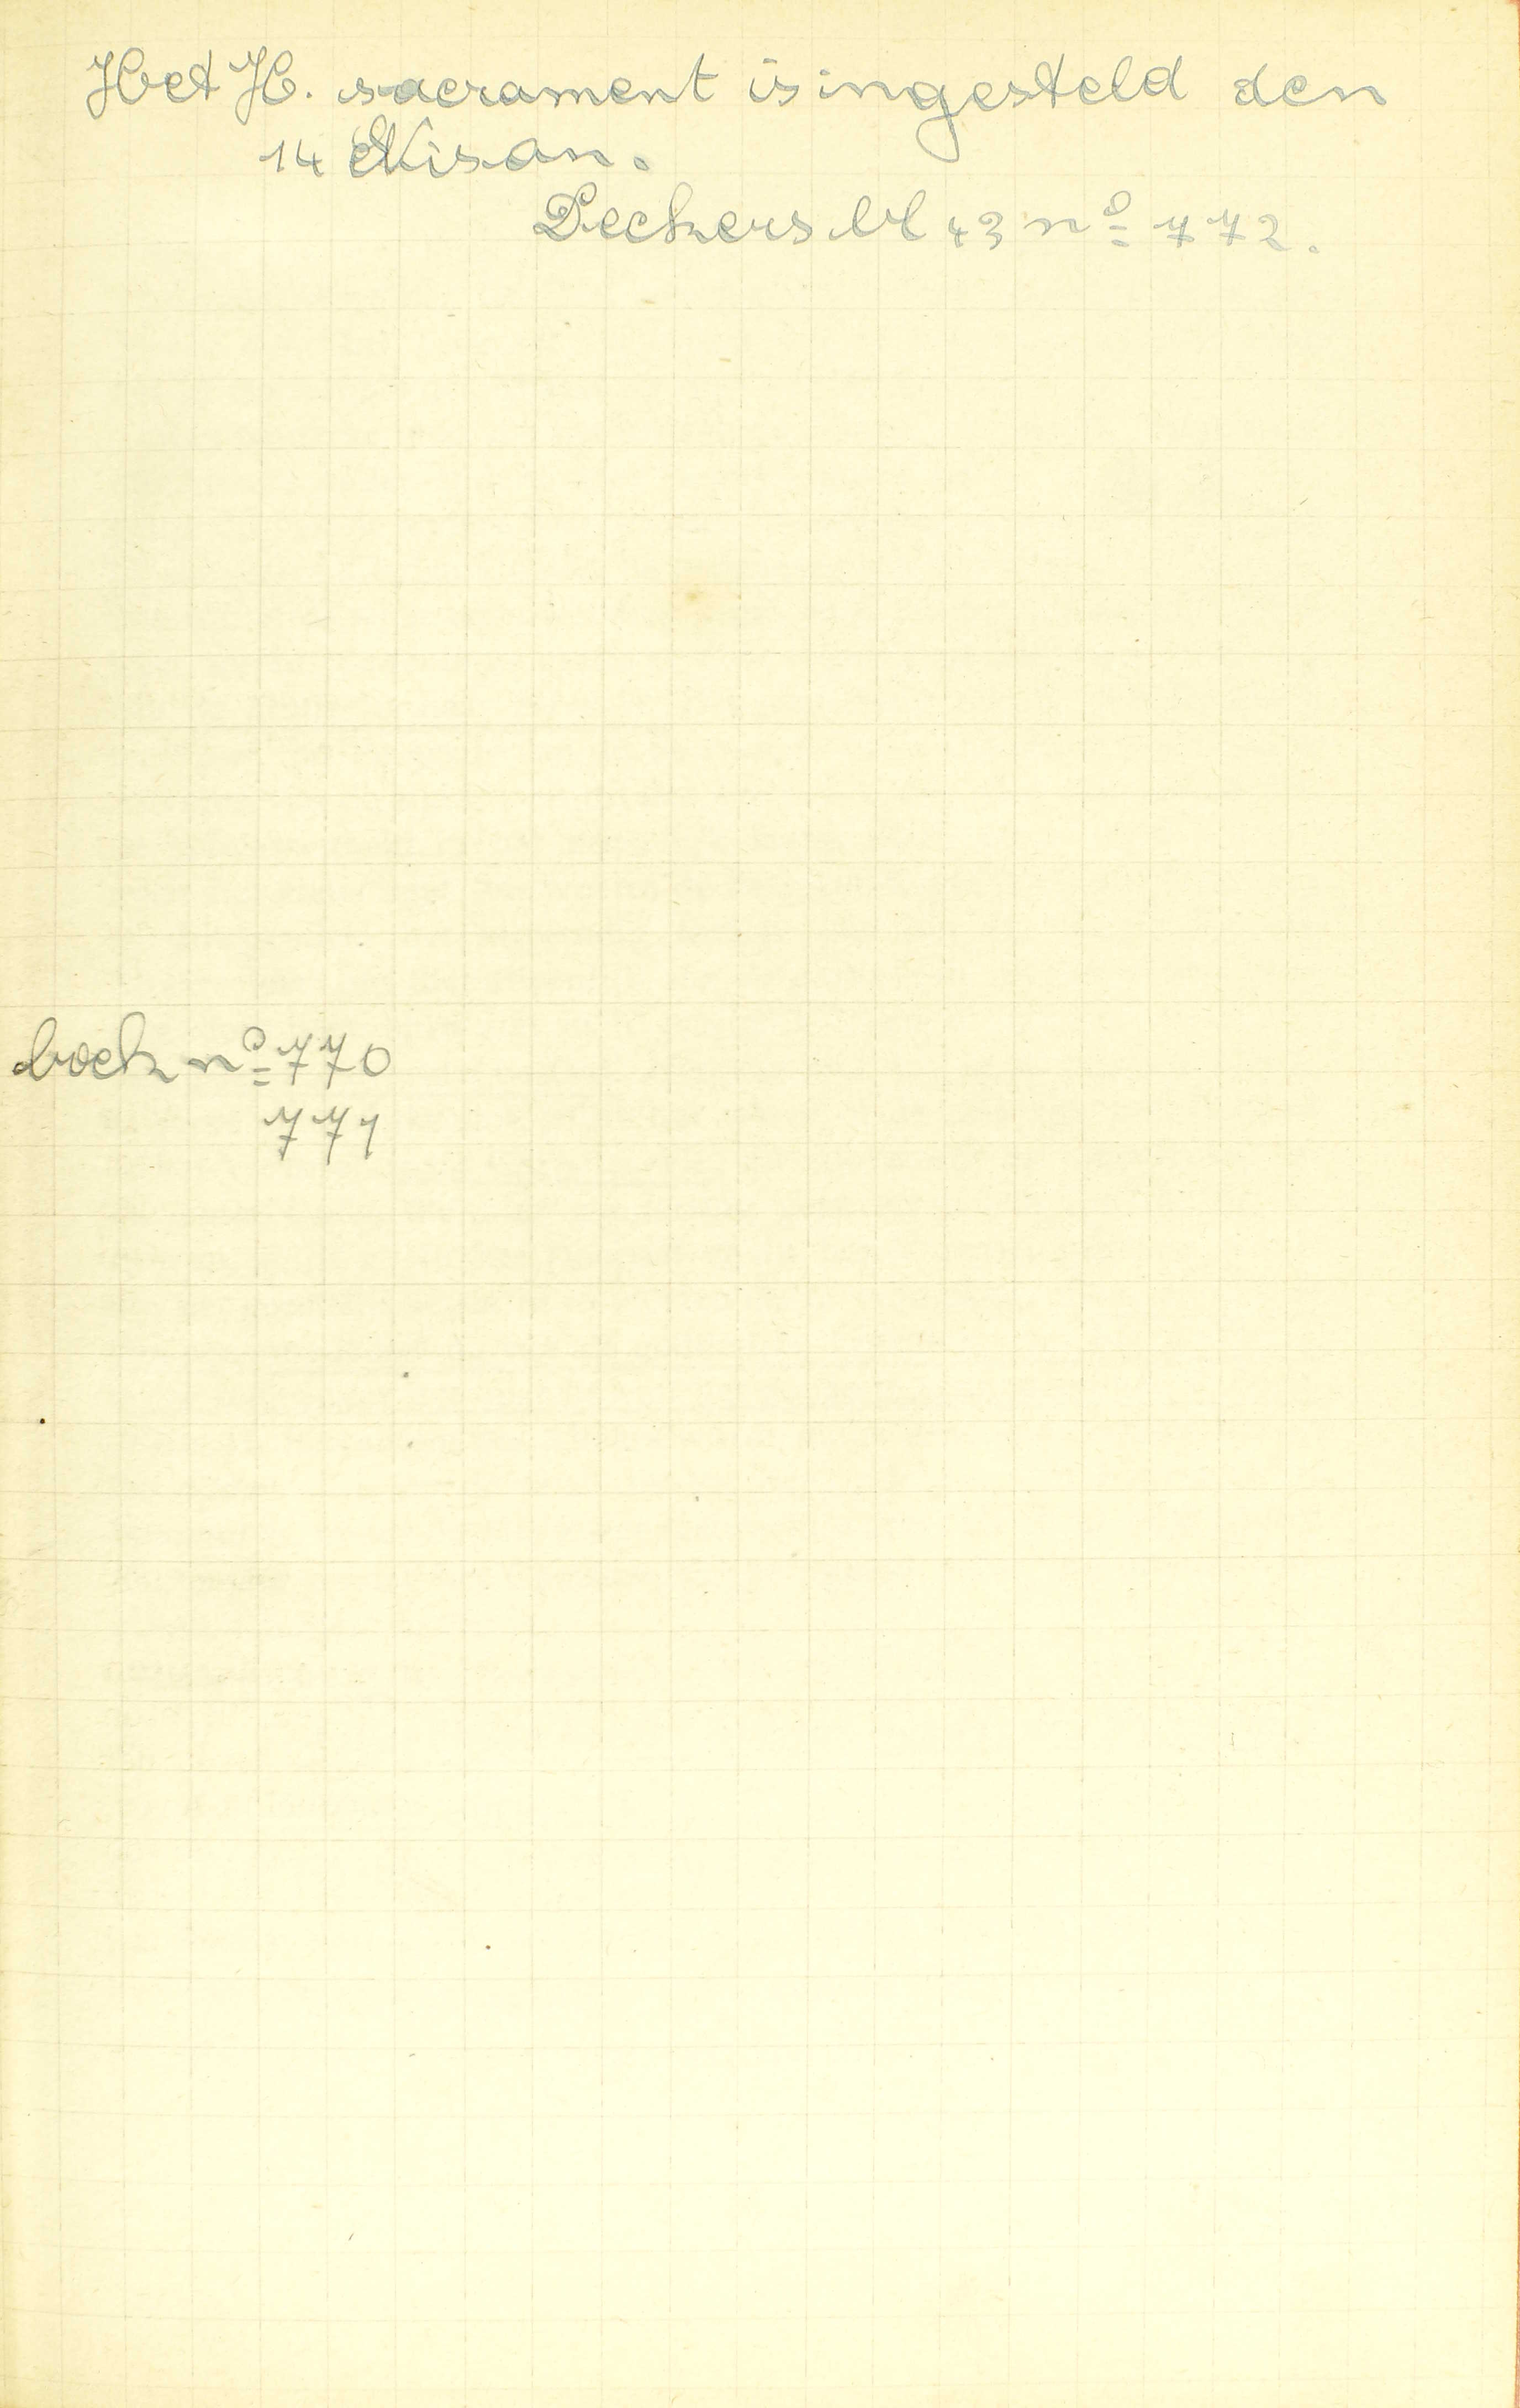 Het H. sacrament is ingesteld den
14 Nisan.
Deckers bl 43 nº 772.
boek nº 770
771